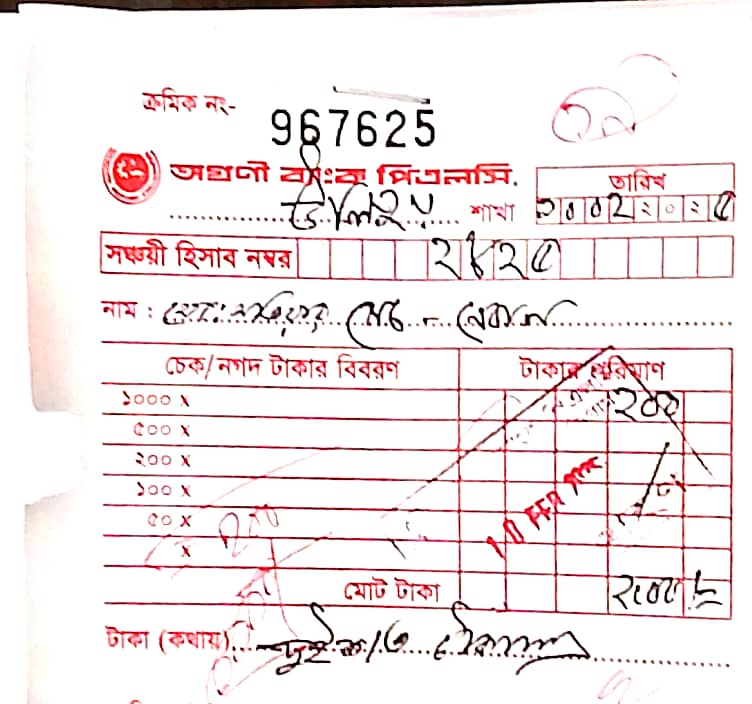 ক্রমিক নং- 967625
অগ্রণী ব্যাংক পিএলসি.
উলিপুর শাখা
তারিখ
সঞ্চয়ী হিসাব নম্বর ২৪২৫
নাম :
চেক/নগদ টাকার বিবরণ টাকার পরিমাণ
১০০০ x ২০০
৫০০ x
২০০ x
১০০ x
৫০ x
x
10 FEB
মোট টাকা ২০০/=
টাকা (কথায়) দুইশত টাকা